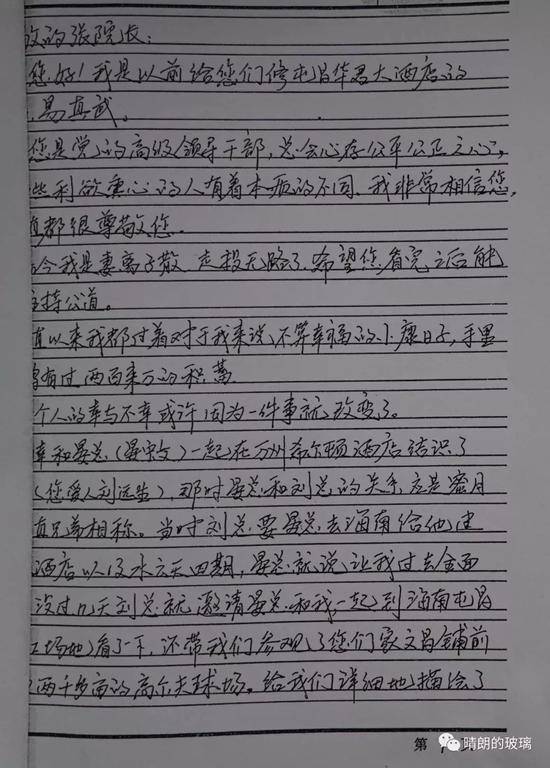 敬的张院长：
您好！我是以前给您们修屯昌华君大酒店的
易真武。
您是党的高级领导干部，总会心存公平公正之心，
些利欲熏心的人有着本质的不同，我非常相信您，
直都很尊敬您。
今我是妻离子散、走投无路了，希望您看完之后能
主持公道。
直以来我都过着对于我来说不算幸福的小康日子，手里
曾有过两百来万的积蓄
个人的幸与不幸或许因为一件事就改变了。
年和晏总（晏忠文）一起在万州希尔顿酒店结识了
（您爱人刘远生），那时晏总和刘总的关系应是蜜月
直兄弟相称。当时刘总要晏总去海南给他建
酒店以及水云天四期，晏总就说让我过去全面
没过几天刘总就邀请晏总和我一起到海南屯昌
工场地看了下，还带我们参观了您们家文昌铺前
两千多亩的高尔夫球场。给我们详细地描绘了
第 1 页
晴朗的玻璃